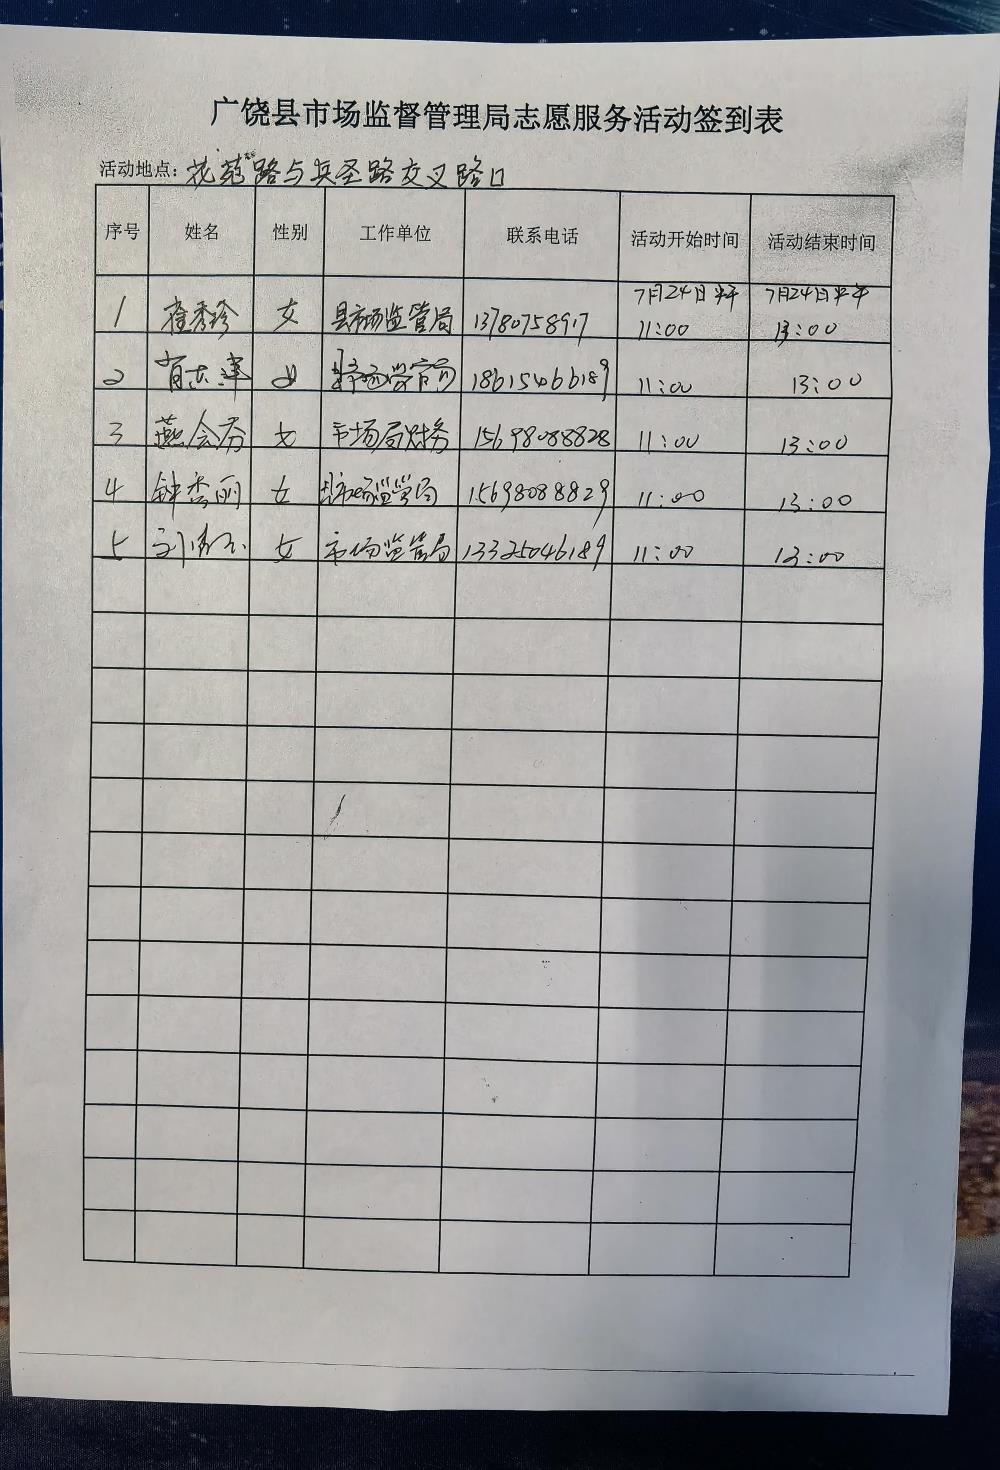 广饶县市场监督管理局志愿服务活动签到表
活动地点：花苑路与兵圣路交叉路口
序号 姓名 性别 工作单位 联系电话 活动开始时间 活动结束时间
1 秀珍 女 县市场监管局 13780758917 7月24日 11:00 7月24日 13:00
2 女 市场监管局 18615466189 11:00 13:00
3 燕会芬 女 市场局财务 15698088828 11:00 13:00
4 钟秀丽 女 市场监管局 15698088829 11:00 13:00
5 刘 女 市场监管局 13325046189 11:00 13:00